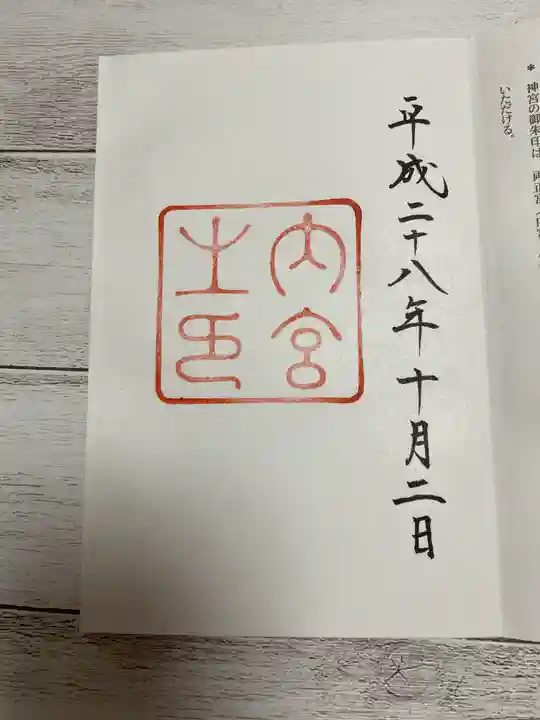 * 神宮の御朱印は、両正宮
いただける。
平成二十八年十月二日
内宮
之印